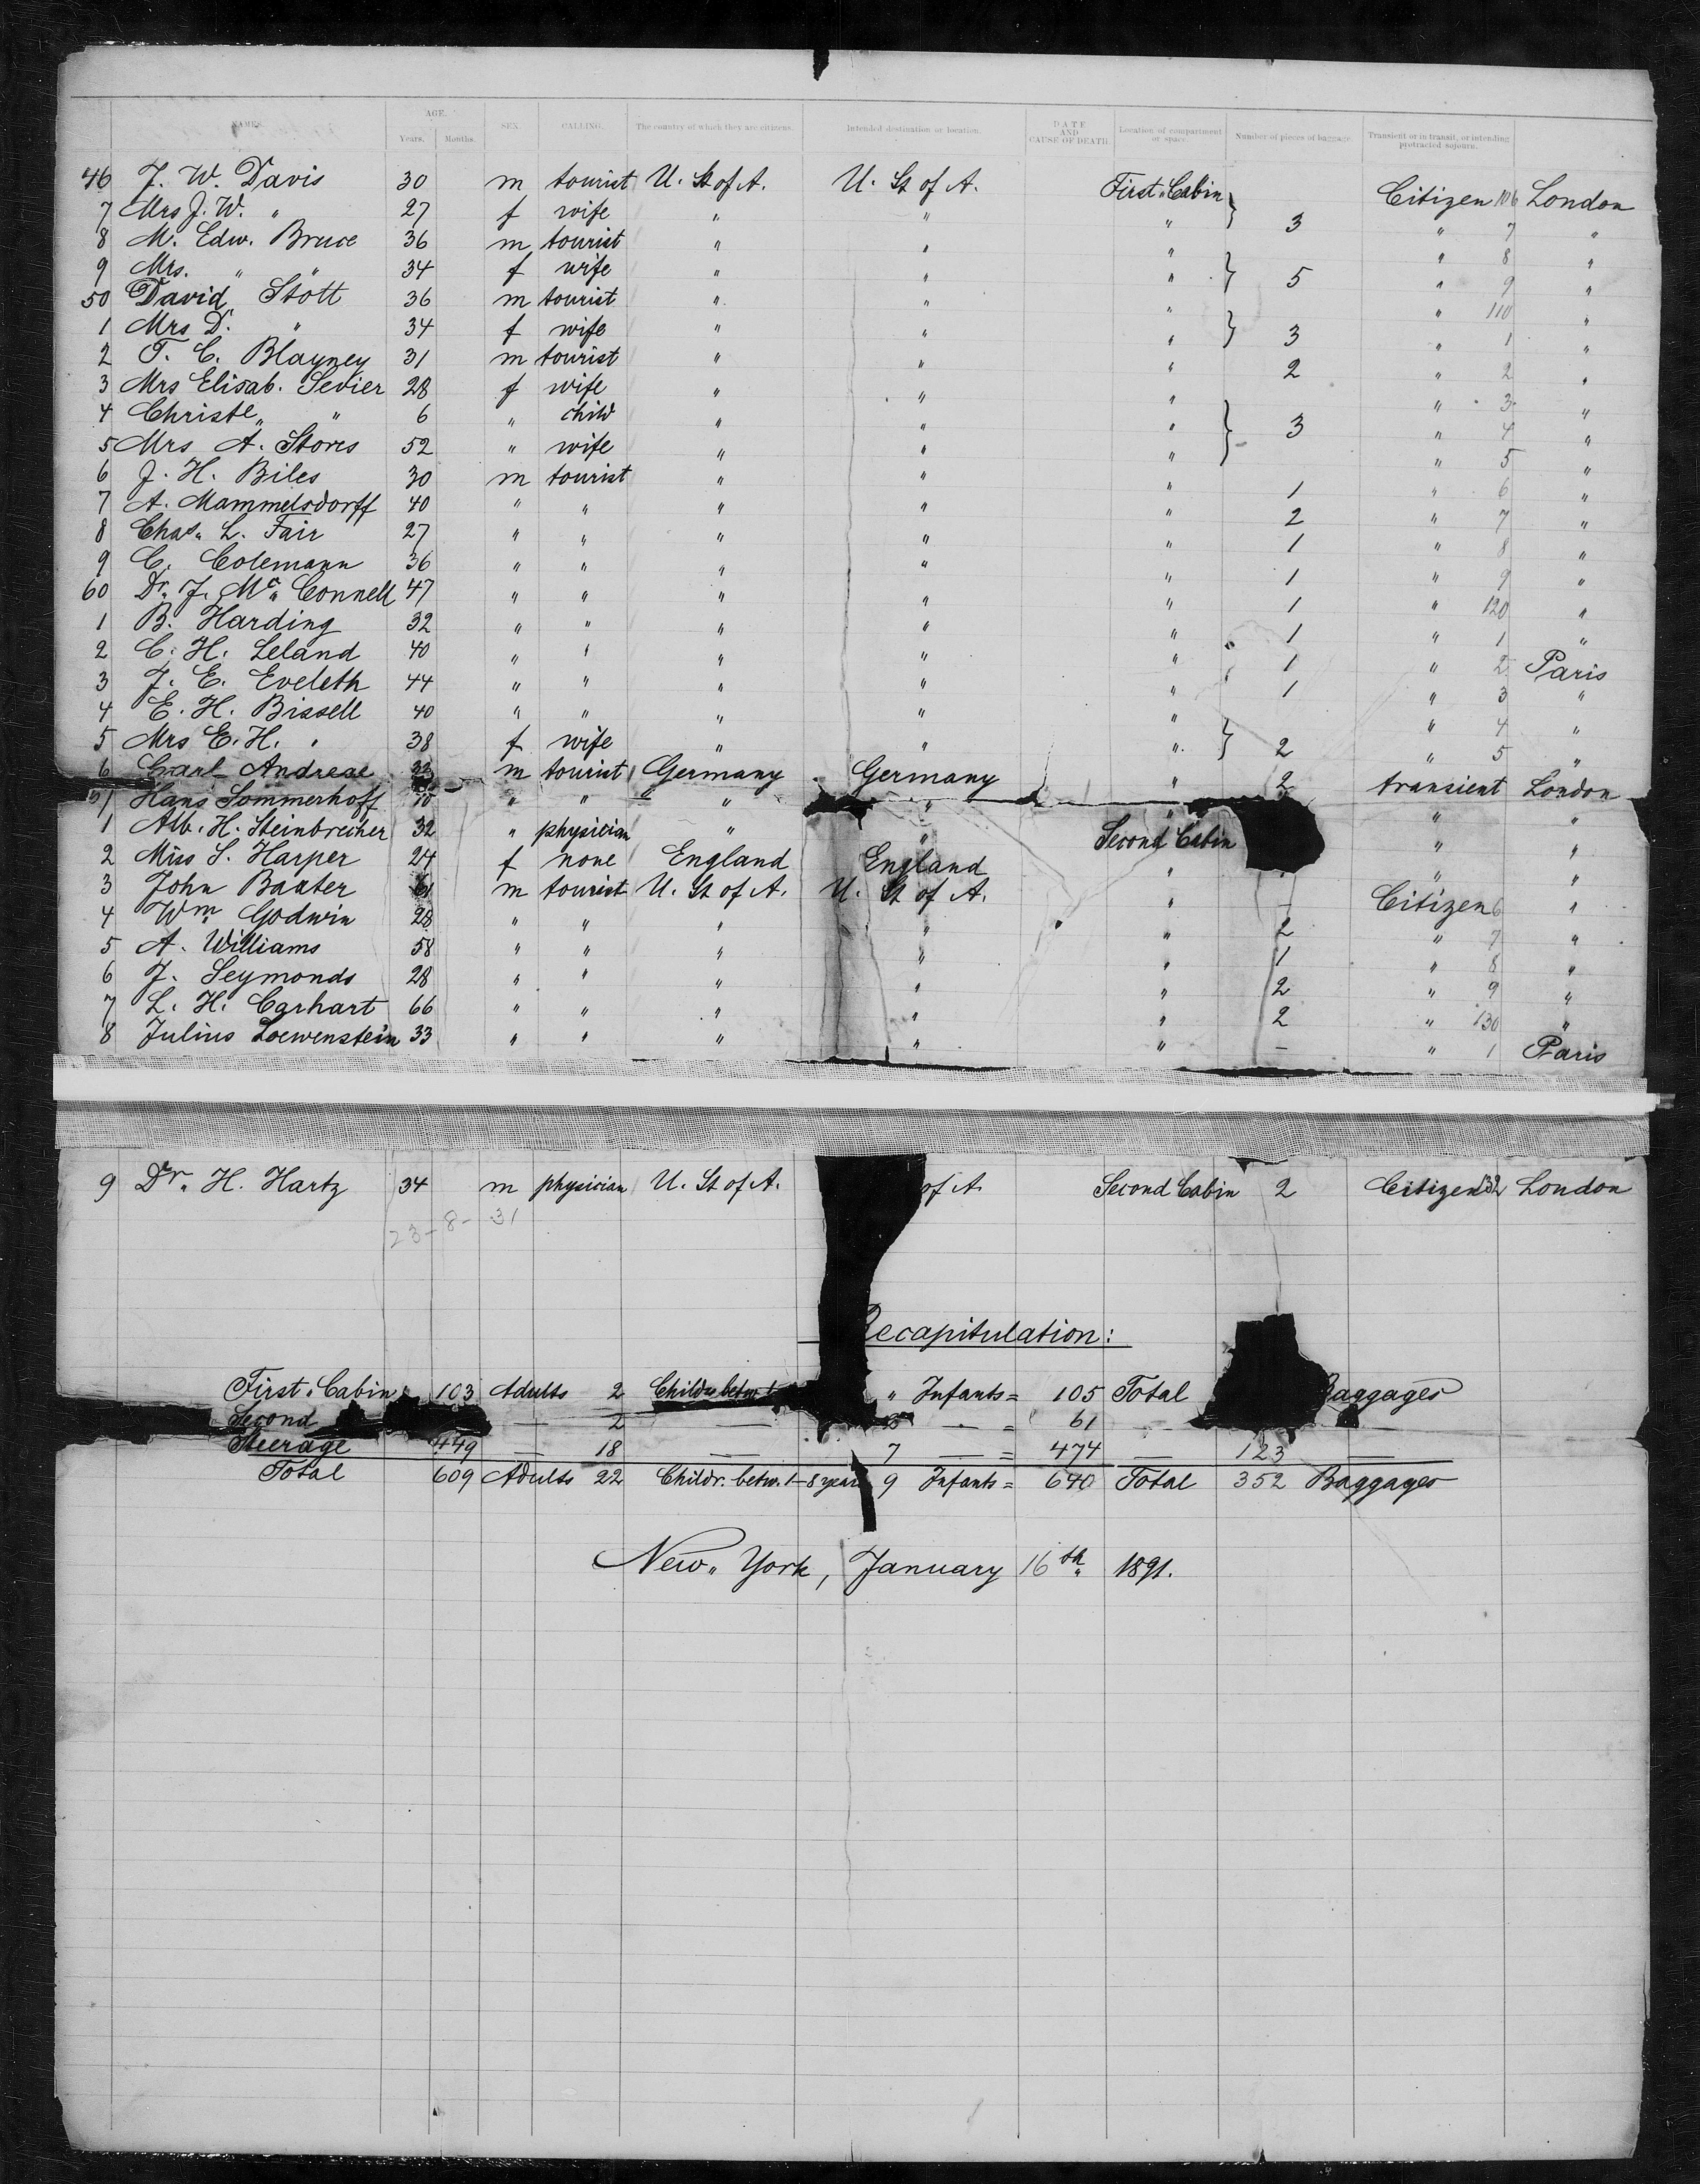 NAMES. AGE. Years. Months. SEX. CALLING. The country of which they are citizens. Intended destination or location. DATE AND CAUSE OF DEATH Location of compartment or space. Number of pieces of baggage Transient or in transit, or intending protracted sojourn.
46 J. W. Davis 30 m tourist U. St of A. U. St of A. First " Cabin Citizen 106 London
7 Mrs J. W. " 27 f wife " " " } 3 " 7 "
8 M. Edw. Bruce 36 m tourist " " " " 8 "
9 Mrs. " " 34 f wife " " " } 5 " 9 "
50 David Stott 36 m tourist " " " " 110 "
1 Mrs D. " 34 f wife " " " } 3 " 1 "
2 T. C. Blayney 31 m tourist " " " 2 " 2 "
3 Mrs Elisab. Sevier 28 f wife " " " " 3 "
4 Christe " " 6 " child " " " } 3 " 4 "
5 Mrs A. Stores 52 " wife " " " " 5 "
6 J. H. Biles 30 m tourist " " " 1 " 6 "
7 A. Mammelsdorff 40 " " " " " 2 " 7 "
8 Chas. L. Fair 27 " " " " " 1 " 8 "
9 C. Colemann 36 " " " " " 1 " 9 "
60 Dr. J. Mc Connell 47 " " " " " 1 " 120 "
1 B. Harding 32 " " " " " 1 " 1 "
2 C. H. Leland 40 " " " " " 1 " 2 Paris
3 J. E. Eveleth 44 " " " " " 1 " 3 "
4 E. H. Bissell 40 " " " " " " 4 "
5 Mrs E. H. " 38 f wife " " " } 2 " 5 "
6 Carl Andreae 33 m tourist Germany Germany " 2 transient London
Hans Sommerhoff " " " " " " "
1 Alb. H. Steinbrecher 32 " physician " " Second Cabin " "
2 Miss S. Harper 24 f none England England " " "
3 John Baxter 61 m tourist U. St of A. U. St of A. " – Citizen 6 "
4 Wm Godwin 28 " " " " " 2 " 7 "
5 A. Williams 58 " " " " " 1 " 8 "
6 J. Seymonds 28 " " " " " 2 " 9 "
7 L. H. Carhart 66 " " " " " 2 " 130 "
8 Julius Loewenstein 33 " " " " " – " 1 Paris
9 Dr. H. Hartz 34 m physician U. St of A. of A. Second Cabin 2 Citizen 132 London
23-8-31
Recapitulation:
First " Cabin 103 Adults 2 Childr. betw. 1 " Infants = 105 Total Baggages
Second — 2 — — = 61 — —
Steerage 449 — 18 — 7 — = 474 — 123 —
Total 609 Adults 22 Childr. betw. 1–8 year 9 Infants = 640 Total 352 Baggages
New " York, January 16th 1891.